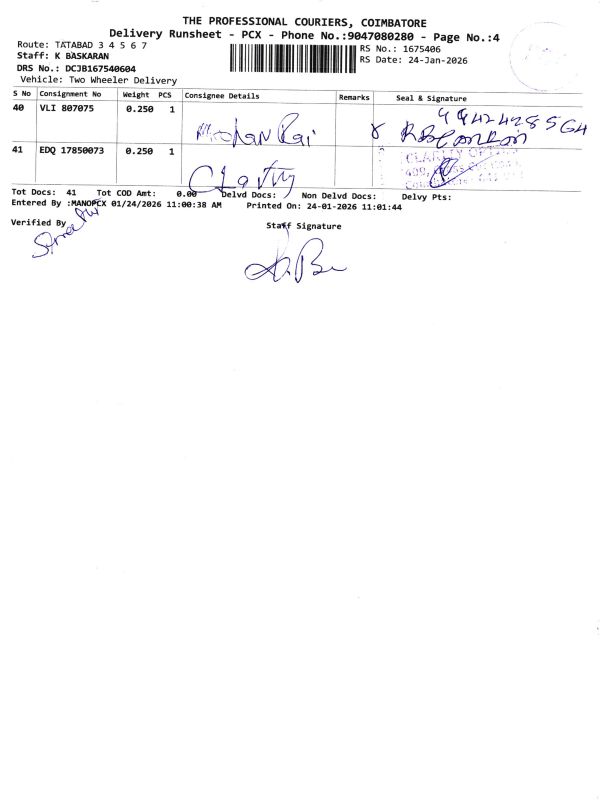 THE PROFESSIONAL COURIERS, COIMBATORE
Delivery Runsheet - PCX - Phone No.:9047080280 - Page No.:4
Route: TATABAD 3 4 5 6 7
RS No.: 1675406
Staff: K BASKARAN
RS Date: 24-Jan-2026
DRS No.: DCJB167540604
Vehicle: Two Wheeler Delivery
S No Consignment No Weight PCS Consignee Details Remarks Seal & Signature
40 VLI 807075 0.250 1 Mohan Rai
41 EDQ 17850073 0.250 1
CLARITY
Tot Docs: 41 Tot COD Amt: 0.00 Delvd Docs: Non Delvd Docs: Delvy Pts:
Entered By :MANOPCX 01/24/2026 11:00:38 AM Printed On: 24-01-2026 11:01:44
Verified By
Staff Signature